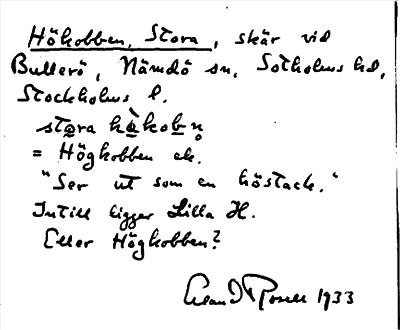 Hökobben, Stora, skär vid
Bullerö, Nämdö sn, Sotholms hd,
Stockholms l.
stora hàkobn̥
= Högkobben ek.
"Ser ut som en höstack."
Intill ligger Lilla H.
Eller Högkobben?
1933